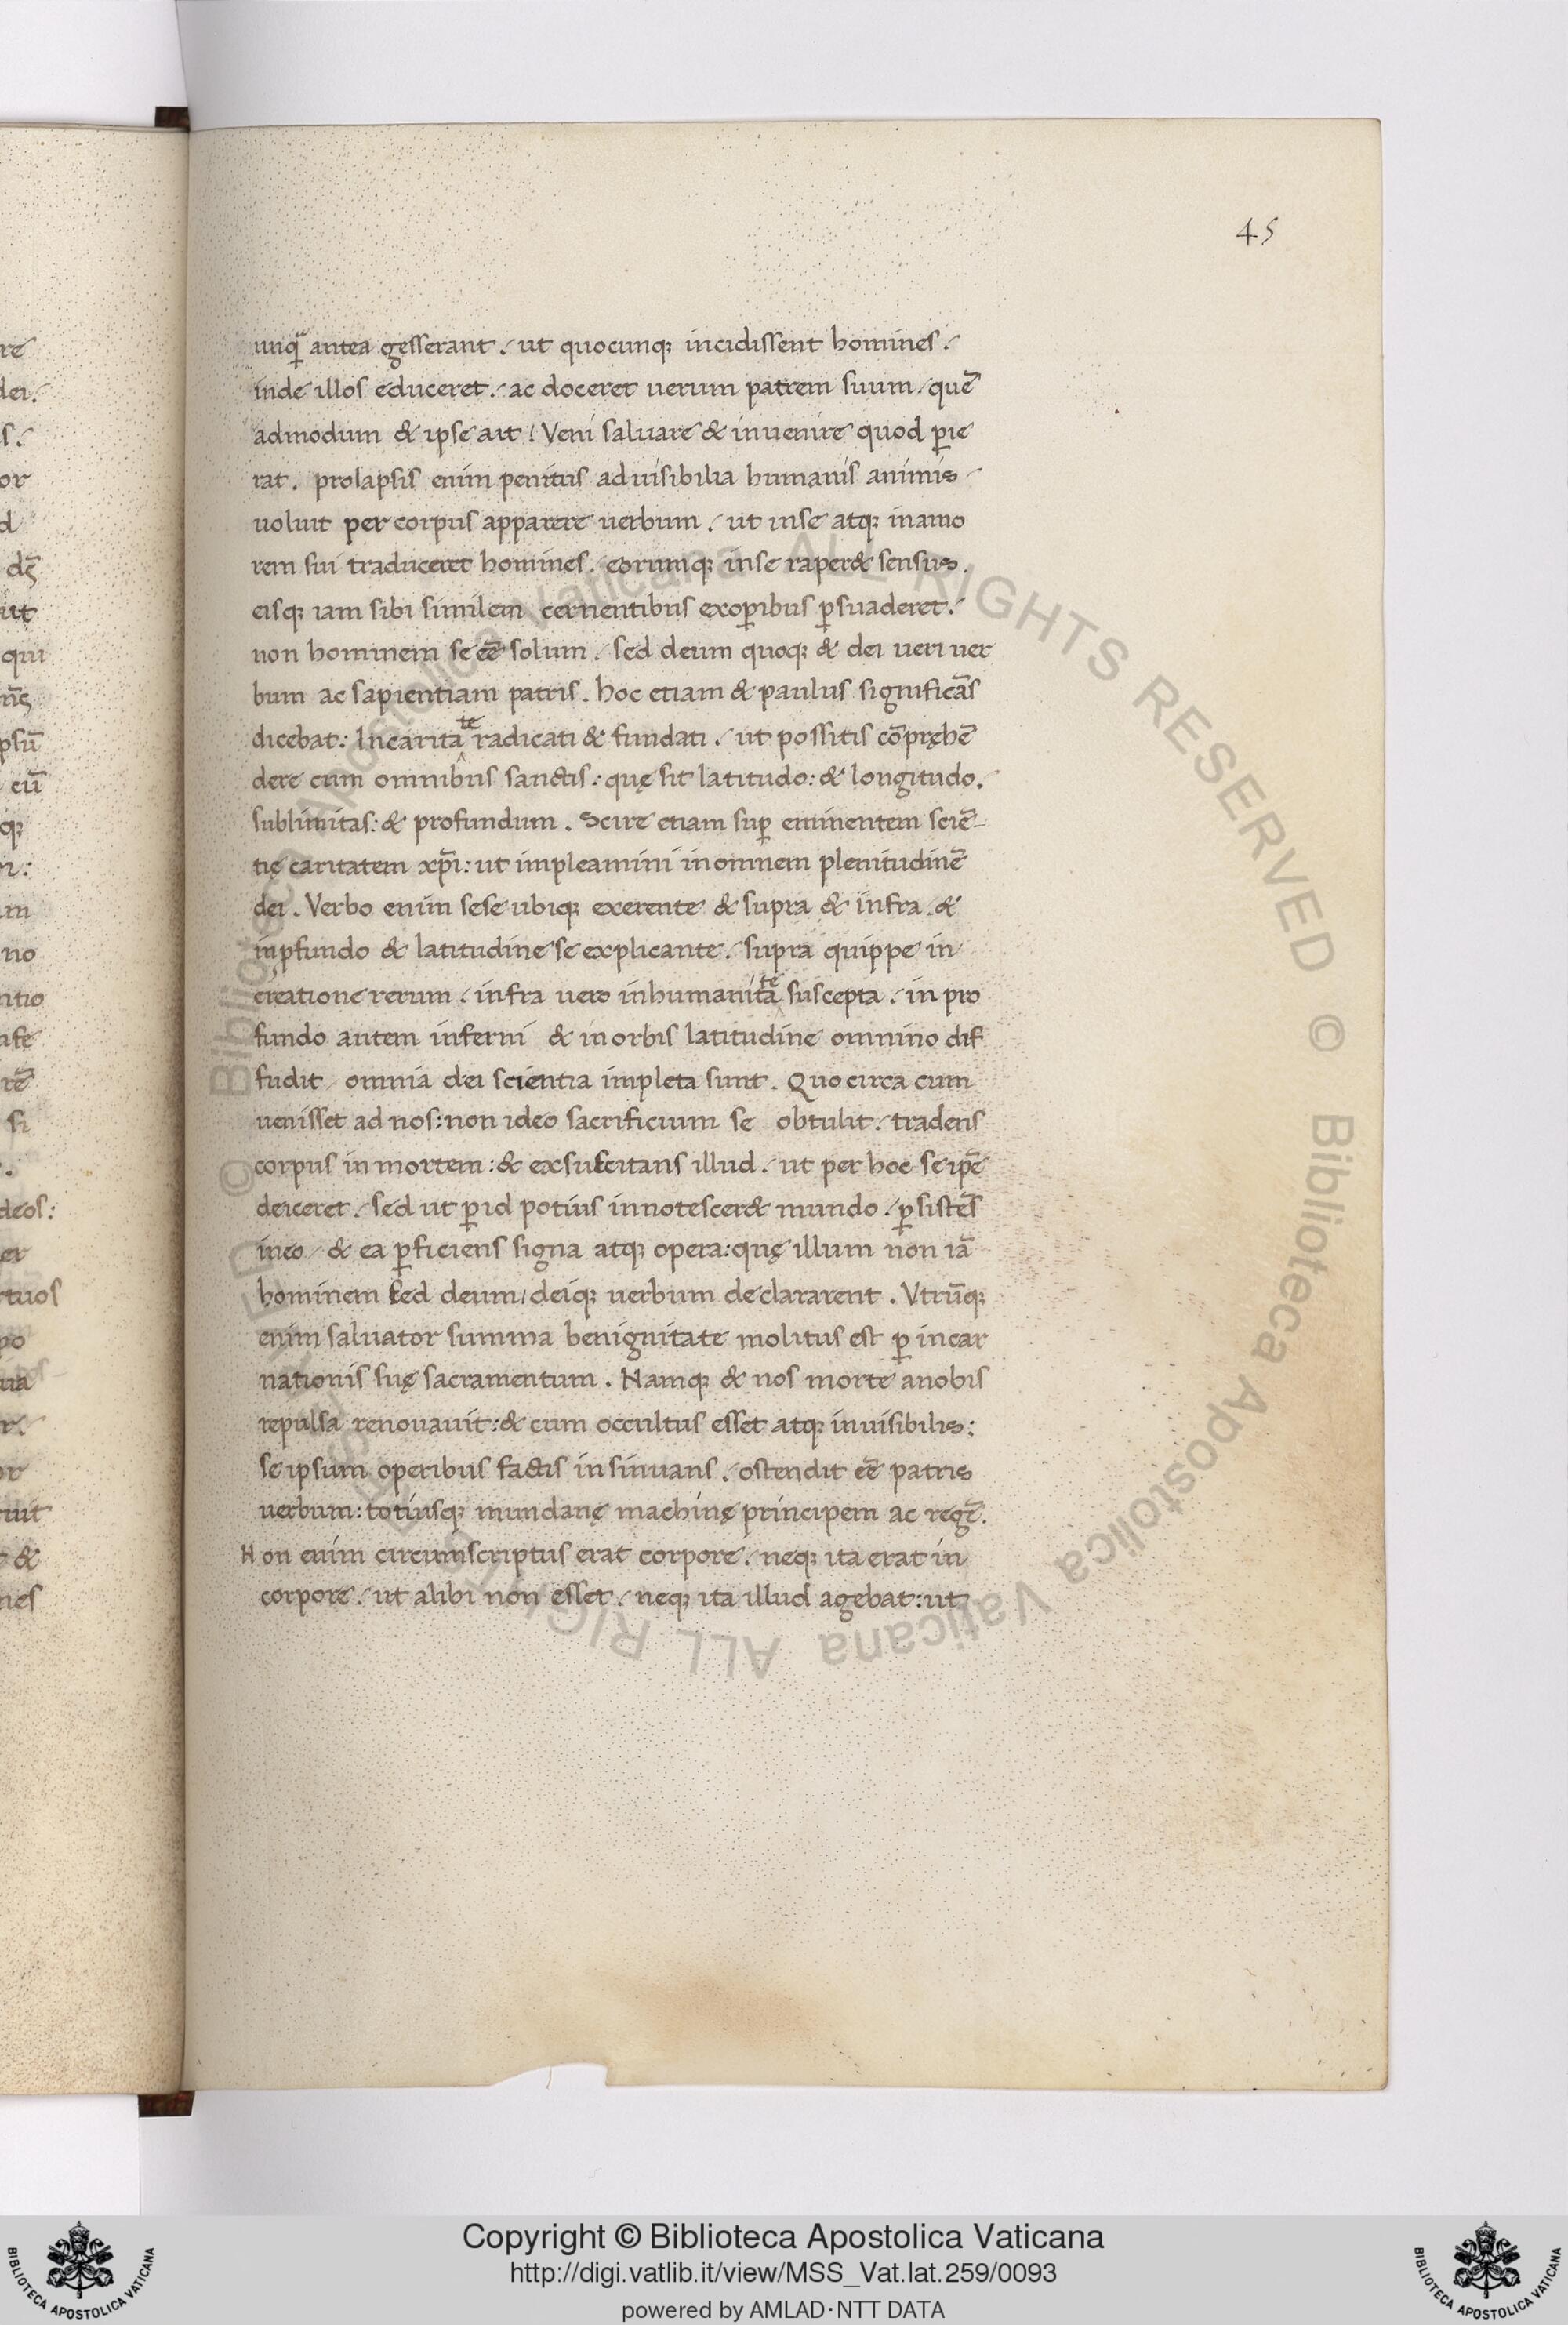 45
unq̃ antea gesserant. ut quocunq; incidissent homines.
inde illos educeret. ac doceret uerum patrem suum. quē
admodum & ipse ait! Veni saluare & inuenire quod ꝑie
rat. prolapsis enim penitus ad uisibilia humanis animis
uoluit per corpus apparere uerbum. ut inse atq; inamo
rem sui traduceret homines. eorumq; inse raper& sensus.
eisq; iam sibi similem cernentibus exoꝑibus ꝑsuaderet.
non hominem se eē solum. sed deum quoq; & dei ueri uer
bum ac sapientiam patris. hoc etiam & paulus significās
dicebat: Incaritate radicati & fundati. ut possitis cōpręhē
dere cum omnibus sanctis: quę sit latitudo: & longitudo.
sublimitas: & profundum. Scire etiam suꝑ eminentem sciē-
tię caritatem xp̄i: ut impleamini inomnem plenitudinē
dei. Verbo enim sese ubiq; exerente & supra & infra. &
inꝓfundo & latitudine se explicante. supra quippe in
creatione rerum. infra uero inhumanitate suscepta. in pro
fundo autem inferni & in orbis latitudine omnino dif
fudit omnia dei scientia impleta sunt. Quo circa cum
uenisset ad nos: non ideo sacrificium se obtulit. tradens
corpus in mortem: & exsuscitans illud. ut per hoc se ip̄e
deiceret. sed ut ꝑ id potius innotescer& mundo. ꝑsistēs
ineo & ea ꝑficiens signa atq; opera: quę illum non iā
hominem sed deum/deiq; uerbum declararent. Vtrūq;
enim saluator summa benignitate molitus est ꝑ incar
nationis suę sacramentum. Namq; & nos morte anobis
repulsa renouauit: & cum occultus esset atq; inuisibilis:
se ipsum operibus factis insinuans. ostendit eē patris
uerbum: totiusq; mundanę machinę principem ac regē.
Non enim circumscriptus erat corpore. neq; ita erat in
corpore. ut alibi non esset. neq; ita illud agebat: ut
© Biblioteca Apostolica Vaticana ALL RIGHTS RESERVED © Biblioteca Apostolica Vaticana ALL RIGHTS RESERVED
Copyright © Biblioteca Apostolica Vaticana
http://digi.vatlib.it/view/MSS_Vat.lat.259/0093
powered by AMLAD·NTT DATA
BIBLIOTECA APOSTOLICA VATICANA
BIBLIOTECA APOSTOLICA VATICANA